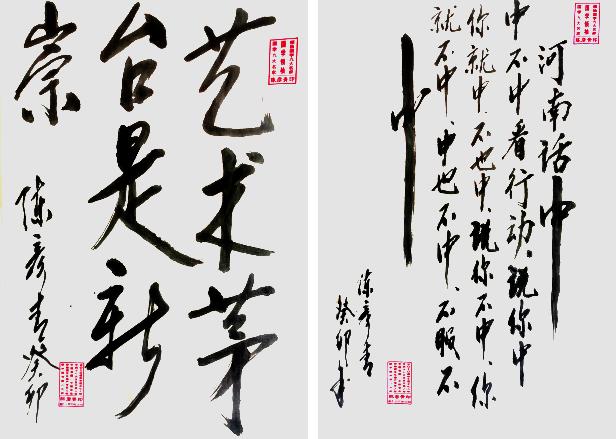 艺术茅
台是新
崇
陈彦青癸卯
河南话中
中不中看行动，说你中
你就中、不也中，说你不中、你
就不中、中也不中、不服不
中
陈彦青
癸卯